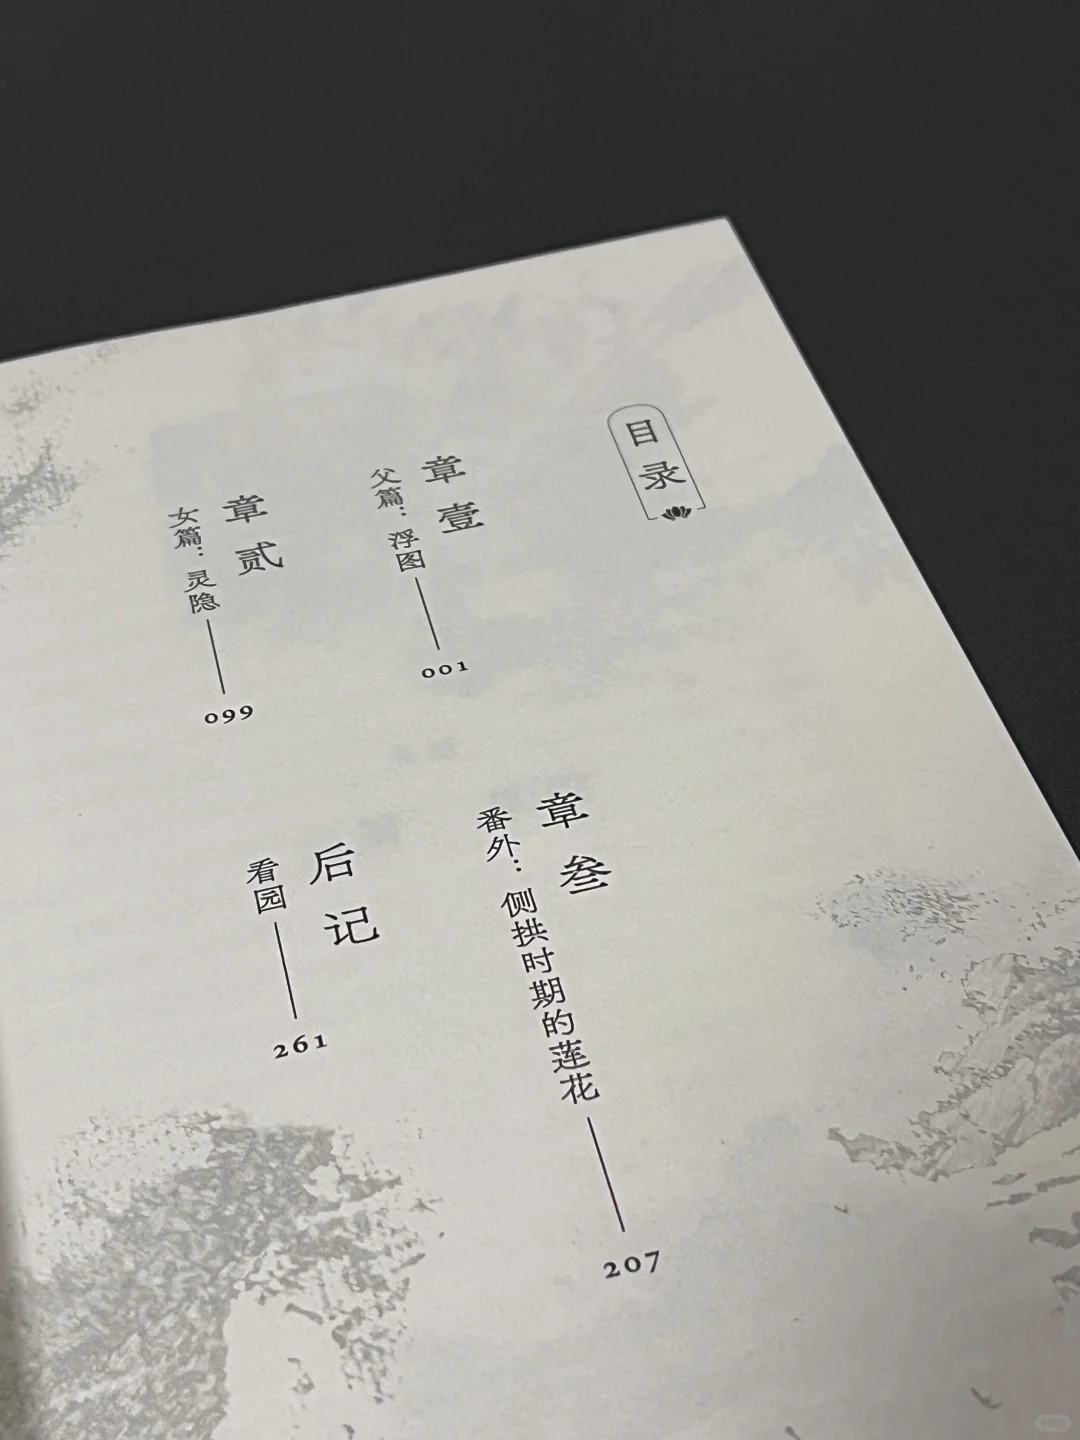 目录
章壹
父篇：浮图
001
章贰
女篇：灵隐
099
章叁
番外：侧拱时期的莲花
207
后记
看园
261
小红书